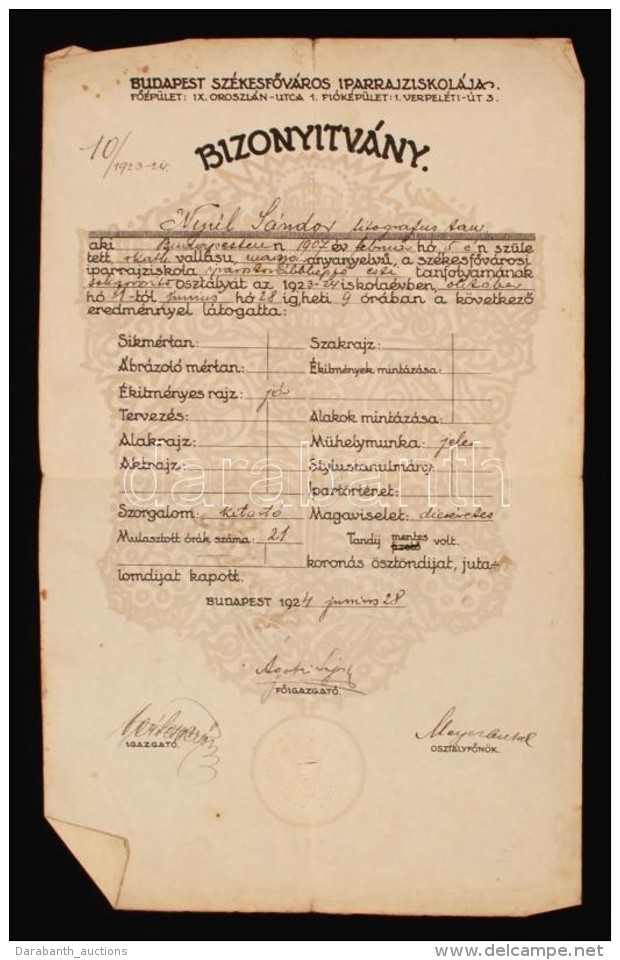 BUDAPEST SZÉKESFŐVÁROS IPARRAJZISKOLÁJA.
FŐÉPÜLET: IX. OROSZLÁN-UTCA 1. FIÓKÉPÜLET: I. VERPELÉTI-ÚT 3.
10/1923-24.
BIZONYITVÁNY.
Nyúl Sándor litografus tan.
aki Budapesten 1907 év február hó 5 én szüle
tett r.kath. vallásu, magyar anyanyelvű, a székesfővárosi
iparrajziskola esti tanfolyamának
osztályát az 1923-24 iskolaévben, október
hó 1-től junius hó 28 ig, heti 9 órában a következő
eredménnyel látogatta:
Sikmértan: Szakrajz:
Ábrázoló mértan: Ékitmények mintázása:
Ékitményes rajz: jó
Tervezés: Alakok mintázása:
Alakrajz: Műhelymunka: jeles
Aktrajz: Stylustanulmány:
darabanth
Ipartörténet:
Szorgalom: kitartó Magaviselet: dicséretes
Mulasztott órák száma: 21 Tandij mentes fizető volt.
koronás ösztöndijat, juta-
lomdijat kapott.
BUDAPEST 1924 junius 28
FŐIGAZGATÓ.
IGAZGATÓ.
Mayer Antal
OSZTÁLYFŐNÖK.
Darabanth_auctions
delcampe.net